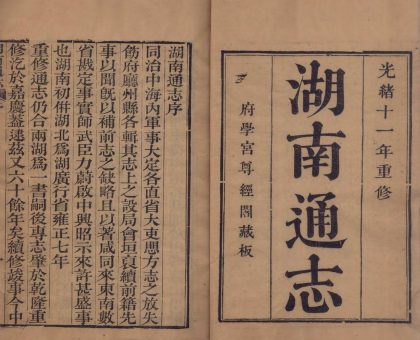 光緒十一年重修
湖南通志
府學宮尊經閣藏板
湖南通志序
同治中海內軍事大定各直省大吏思方志之放失
飭府廳州縣各輯其志上之設局會垣賡續前籍先
事以聞旣以補前志之缺略且以著咸同來東南數
省戡定事實師武臣力蔚啟中興昭示來許甚盛事
也湖南初倂湖北爲湖廣行省雍正七年
重修通志仍合兩湖爲一書嗣後專志肇於乾隆重
修汔於嘉慶蓋逮茲又六十餘年矣續修竣事今中